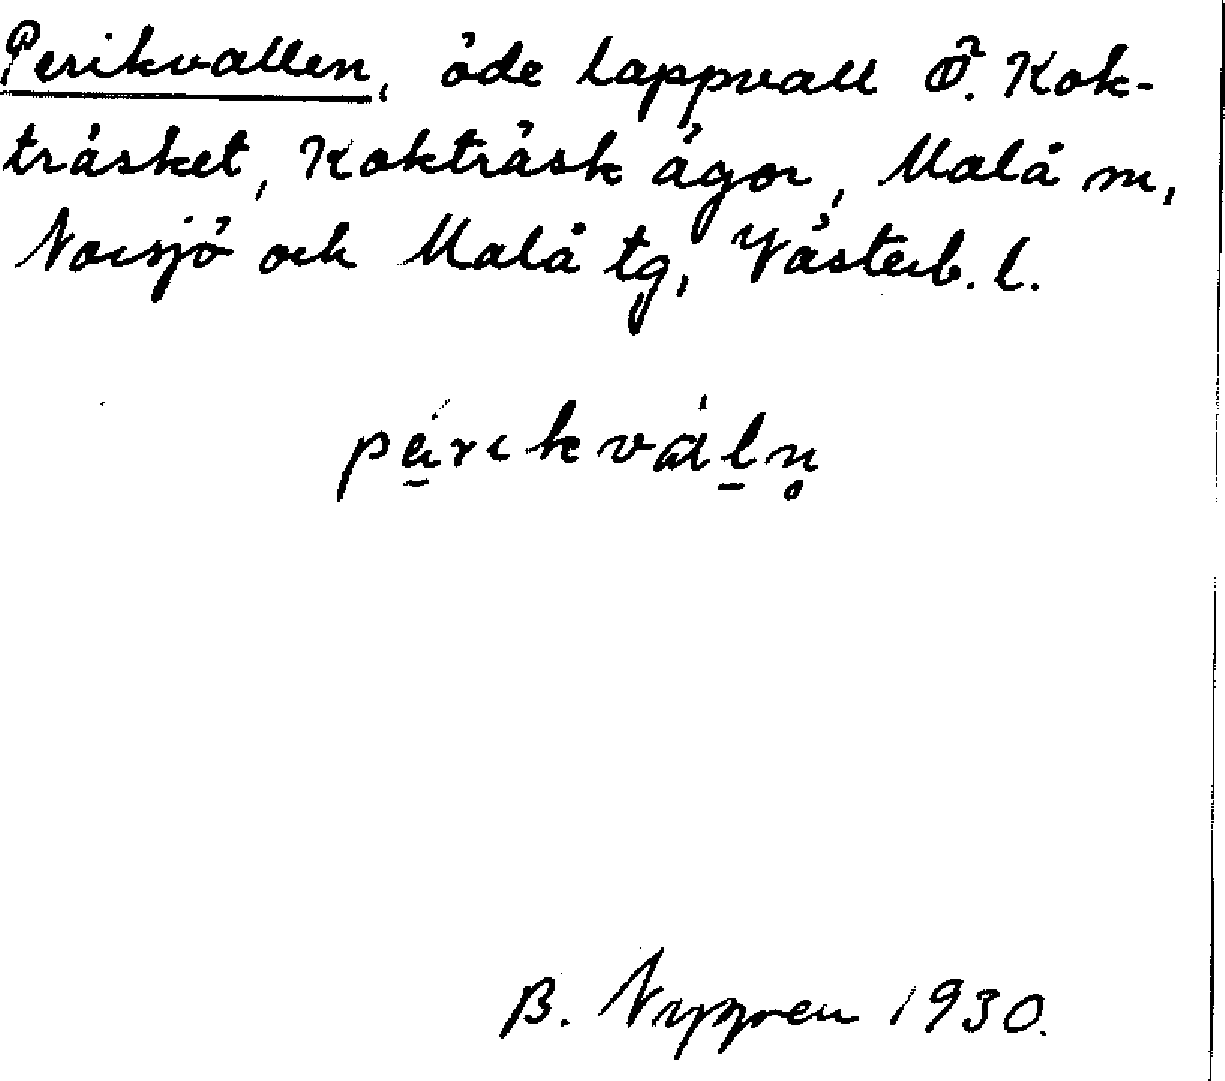 Perikvallen, öde lappvall Ö. Kok-
träsket, Kokträsk ägor, Malå sn,
Norsjö och Malå tg, Västerb. l.
pärikváln̥
B. Nygren 1930.